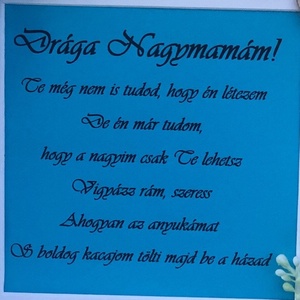 Drága Nagymamám!
Te még nem is tudod, hogy én létezem
De én már tudom,
hogy a nagyim csak Te lehetsz
Vigyázz rám, szeress
Ahogyan az anyukámat
S boldog kacajom tölti majd be a házad